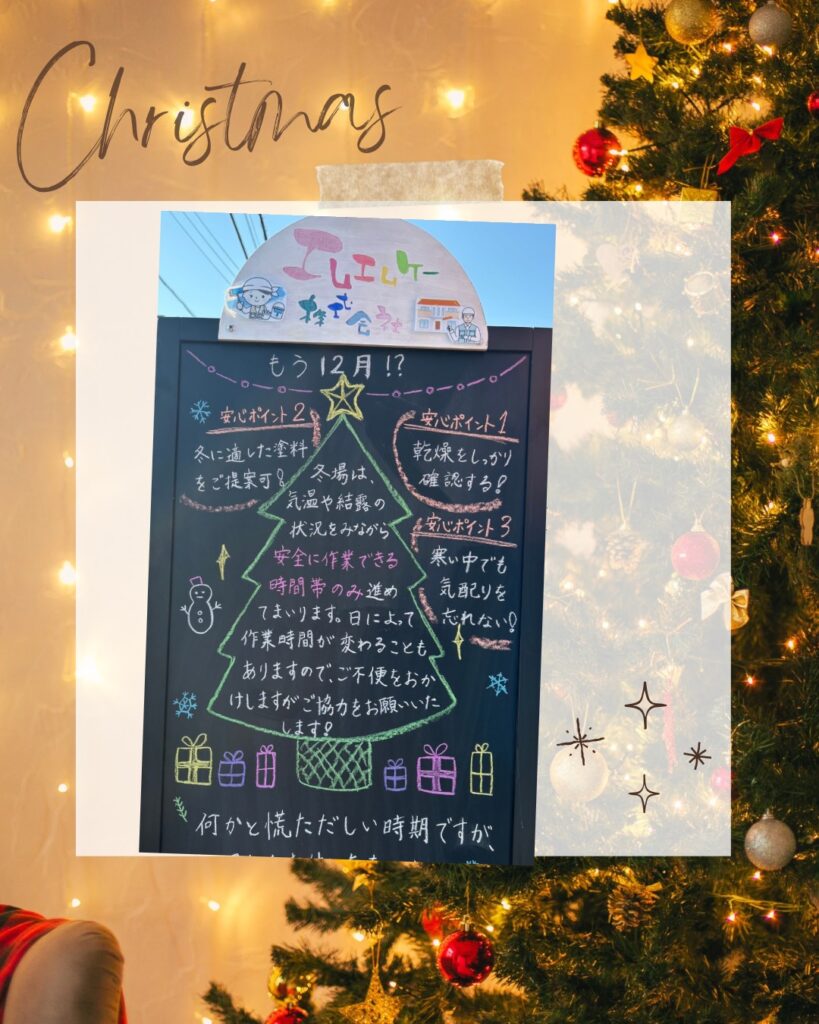 Christmas
エムエムケー
株式会社
もう12月!?
安心ポイント2
冬に適した塗料
をご提案可!
安心ポイント1
乾燥をしっかり
確認する!
安心ポイント3
寒い中でも
気配りを
忘れない!
冬場は、
気温や結露の
状況をみながら
安全に作業できる
時間帯のみ進め
てまいります。日によって
作業時間が変わることも
ありますので、ご不便をおか
けしますがご協力をお願いいた
します!
何かと慌ただしい時期ですが、